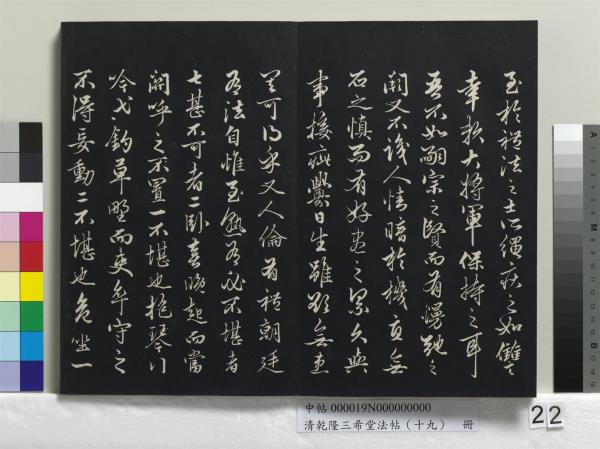 至於禮法之士所繩疾之如讎
幸賴大將軍保持之耳
吾不如嗣宗之賢而有慢弛之
闕又不識人情暗於機宜無
石之慎而有好盡之累久與
事接疵釁日生雖欲無患
其可得乎又人倫有禮朝廷
有法自惟至熟有必不堪者
七甚不可者二臥喜晚起而當
關呼之不置一不堪也抱琴行
吟弋釣草野而吏卒守之
不得妄動二不堪也危坐一
中帖 000019N000000000
清乾隆三希堂法帖（十九） 冊
22